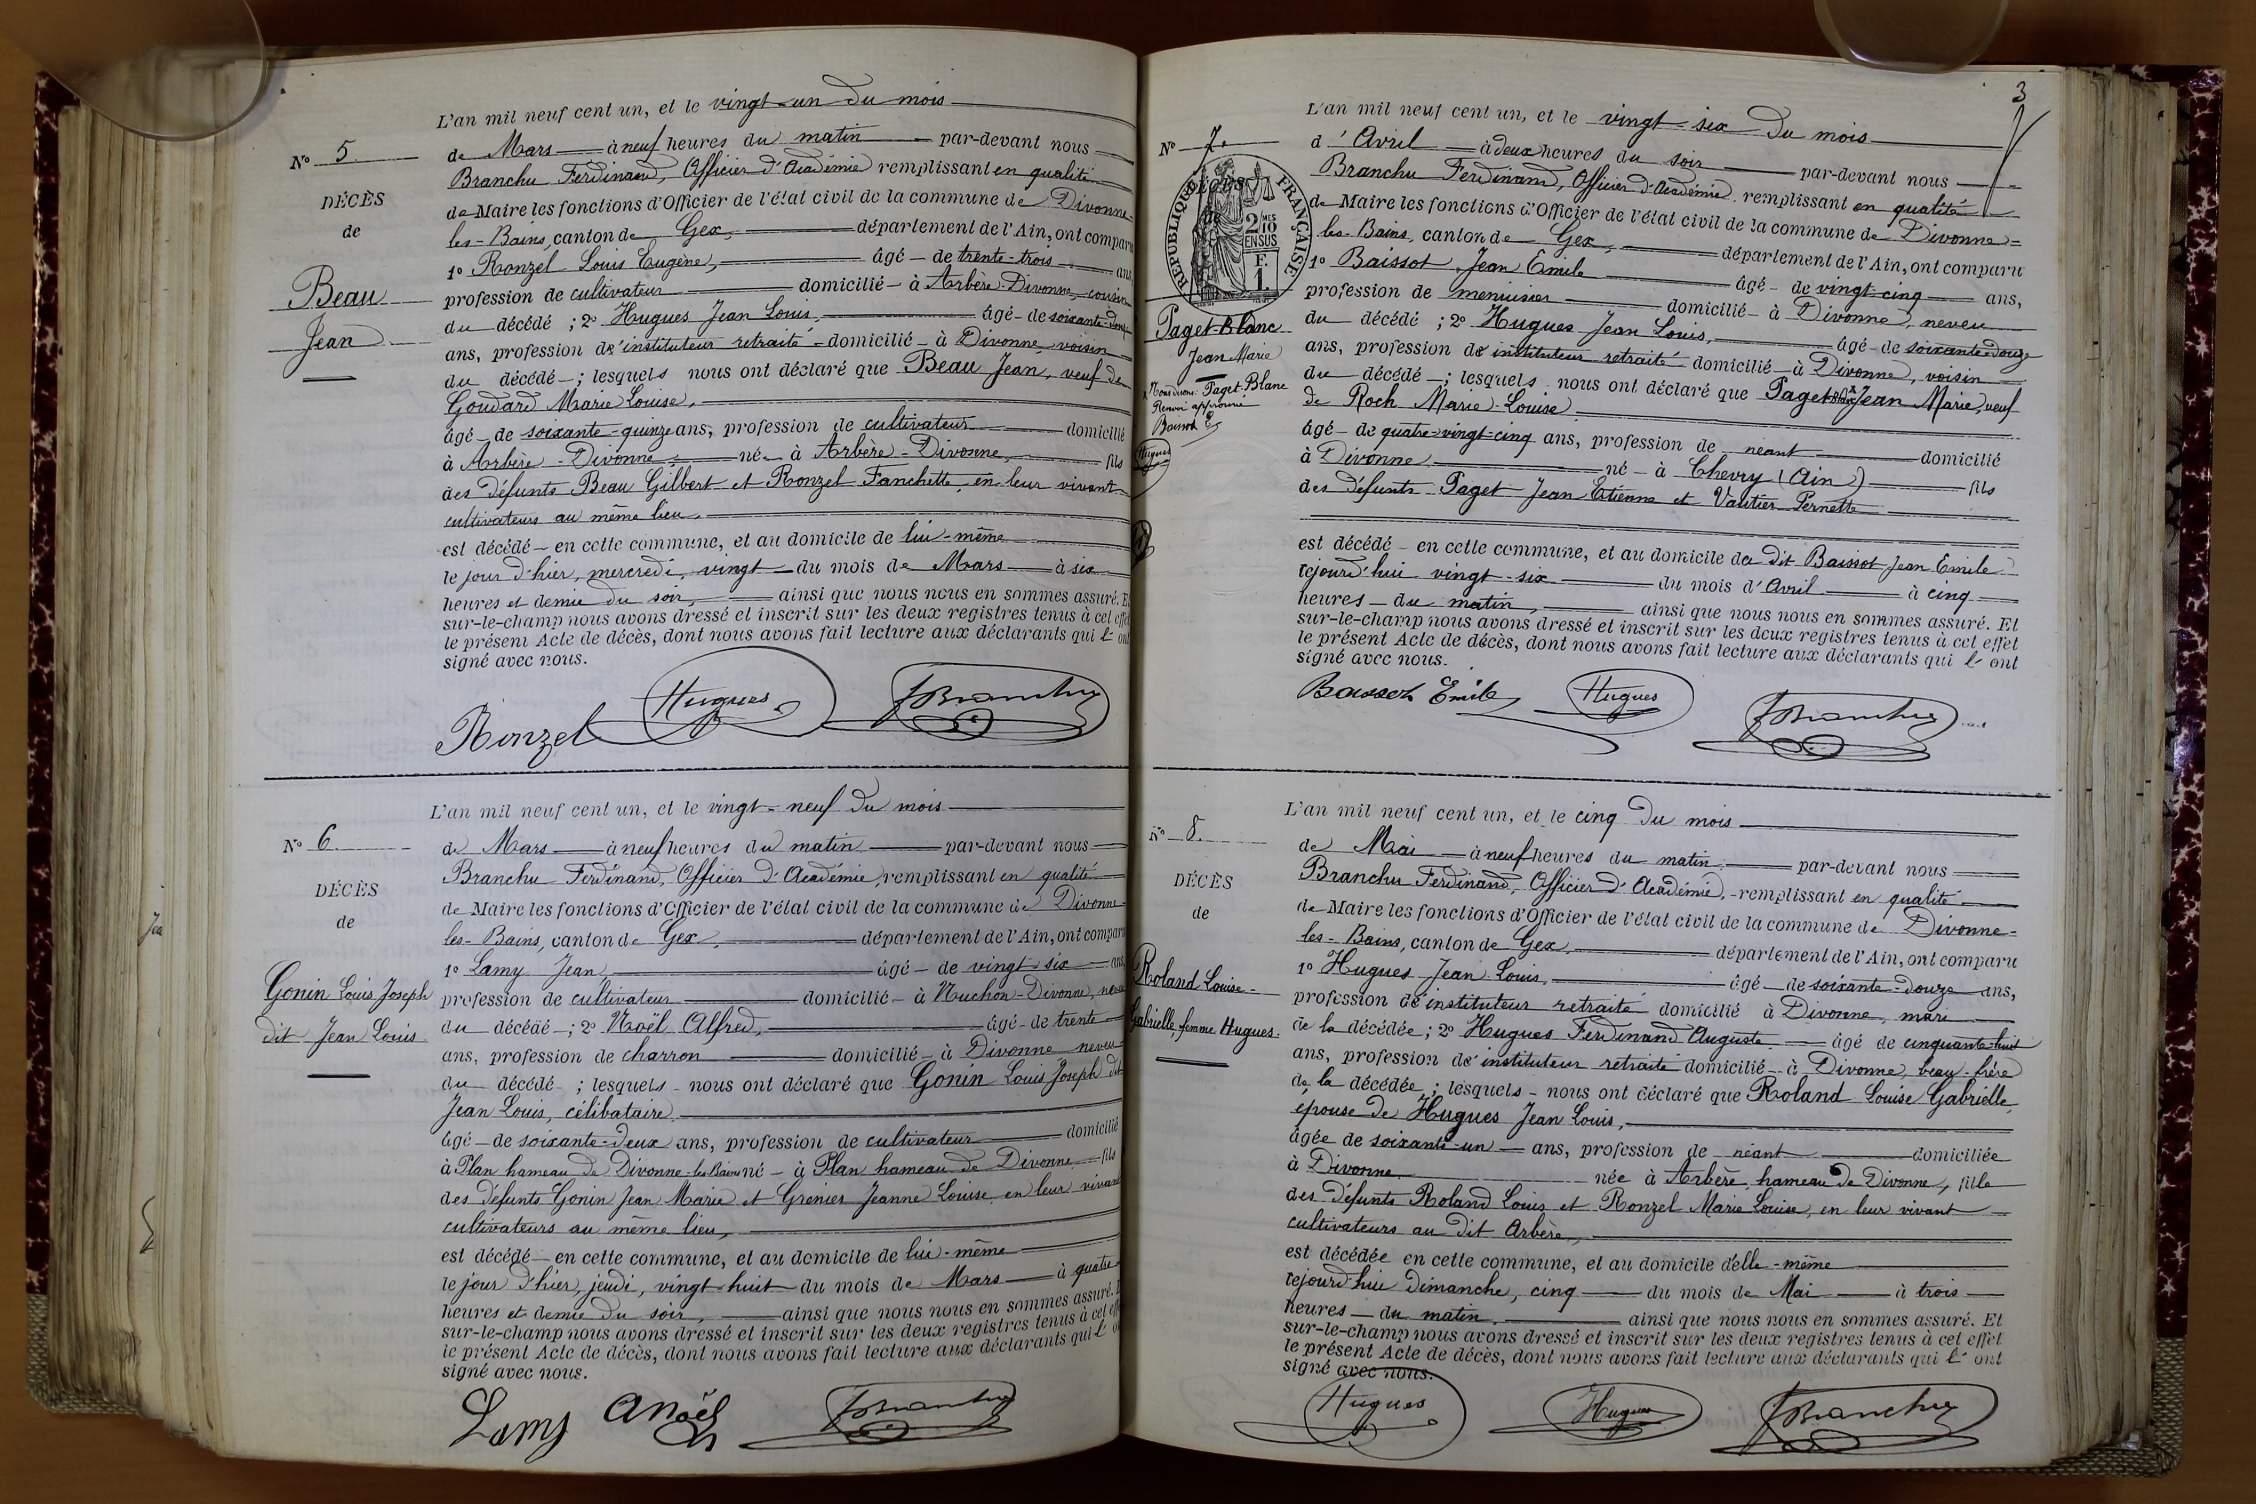 L'an mil neuf cent un, et le vingt-un du mois
N° 5.
de Mars à neuf heures du matin par-devant nous
Branchu Ferdinand, Officier d'Académie remplissant en qualité
DÉCÈS
de Maire les fonctions d'Officier de l'état civil de la commune de Divonne-
de
les-Bains, canton de Gex, département de l'Ain, ont comparu
1° Ronzel Louis Eugène, âgé de trente-trois ans,
Beau
profession de cultivateur domicilié à Arbère-Divonne, cousin
du décédé ; 2° Hugues Jean Louis, âgé de soixante-douze
Jean
ans, profession d'instituteur retraité domicilié à Divonne, voisin
du décédé ; lesquels nous ont déclaré que Beau Jean, veuf de
Goudard Marie Louise,
âgé de soixante-quinze ans, profession de cultivateur domicilié
à Arbère-Divonne, né à Arbère-Divonne, fils
des défunts Beau Gilbert et Ronzel Fanchette, en leur vivant
cultivateurs au même lieu,
est décédé en cette commune, et au domicile de lui-même
le jour d'hier, mercredi, vingt du mois de Mars à six
heures et demie du soir, ainsi que nous nous en sommes assuré. Et
sur-le-champ nous avons dressé et inscrit sur les deux registres tenus à cet effet
le présent Acte de décès, dont nous avons fait lecture aux déclarants qui l'ont
signé avec nous.
Ronzel Hugues FBranchu
L'an mil neuf cent un, et le vingt-neuf du mois
N° 6.
de Mars à neuf heures du matin par-devant nous
Branchu Ferdinand, Officier d'Académie, remplissant en qualité
DÉCÈS
de Maire les fonctions d'Officier de l'état civil de la commune de Divonne-
de
les-Bains, canton de Gex, département de l'Ain, ont comparu
1° Lamy Jean, âgé de vingt-six ans,
Gonin Louis Joseph
profession de cultivateur domicilié à Nuchon-Divonne, neveu
dit Jean Louis
du décédé ; 2° Noël Alfred, âgé de trente
ans, profession de charron domicilié à Divonne neveu
du décédé ; lesquels nous ont déclaré que Gonin Louis Joseph dit
Jean Louis, célibataire
âgé de soixante-deux ans, profession de cultivateur domicilié
à Plan hameau de Divonne-les-Bains né à Plan hameau de Divonne fils
des défunts Gonin Jean Marie et Grenier Jeanne Louise en leur vivant
cultivateurs au même lieu,
est décédé en cette commune, et au domicile de lui-même
le jour d'hier, jeudi, vingt-huit du mois de Mars à quatre
heures et demie du soir, ainsi que nous nous en sommes assuré. Et
sur-le-champ nous avons dressé et inscrit sur les deux registres tenus à cet effet
le présent Acte de décès, dont nous avons fait lecture aux déclarants qui l'ont
signé avec nous.
Lamy ANoël FBranchu
3
L'an mil neuf cent un, et le vingt-six du mois
N° 7.
d'Avril à deux heures du soir par-devant nous
Branchu Ferdinand, Officier d'Académie, remplissant en qualité
DÉCÈS
de
RÉPUBLIQUE FRANÇAISE
2 MES 10 EN SUS
F. 1.
de Maire les fonctions d'Officier de l'état civil de la commune de Divonne-
les-Bains, canton de Gex, département de l'Ain, ont comparu
1° Baissot Jean Emile âgé de vingt-cinq ans,
profession de menuisier domicilié à Divonne, neveu
Paget-Blanc
Jean Marie
du décédé ; 2° Hugues Jean Louis, âgé de soixante-douze
ans, profession d'instituteur retraité domicilié à Divonne, voisin
x Nous disons: Paget-Blanc
Renvoi approuvé
Baissot E
Hugues
du décédé ; lesquels nous ont déclaré que Paget-Blanc x Jean Marie, veuf
de Roch Marie-Louise
âgé de quatre-vingt-cinq ans, profession de néant domicilié
à Divonne né à Chevry (Ain) fils
des défunts Paget Jean Etienne et Vautier Pernette
est décédé en cette commune, et au domicile du dit Baissot Jean Emile
cejourd'hui vingt-six du mois d'Avril à cinq
heures du matin, ainsi que nous nous en sommes assuré. Et
sur-le-champ nous avons dressé et inscrit sur les deux registres tenus à cet effet
le présent Acte de décès, dont nous avons fait lecture aux déclarants qui l'ont
signé avec nous.
Baissot Emile Hugues FBranchu
L'an mil neuf cent un, et le cinq du mois
N° 8.
de Mai à neuf heures du matin par-devant nous
Branchu Ferdinand, Officier d'Académie, remplissant en qualité
DÉCÈS
de Maire les fonctions d'Officier de l'état civil de la commune de Divonne-
de
les-Bains, canton de Gex, département de l'Ain, ont comparu
Roland Louise-
1° Hugues Jean Louis, âgé de soixante-douze ans,
profession d'instituteur retraité domicilié à Divonne, mari
Gabrielle, femme Hugues.
de la décédée ; 2° Hugues Ferdinand Auguste, âgé de cinquante-huit
ans, profession d'instituteur retraité domicilié à Divonne, beau-frère
de la décédée ; lesquels nous ont déclaré que Roland Louise Gabrielle,
épouse de Hugues Jean Louis,
âgée de soixante-un ans, profession de néant domiciliée
à Divonne née à Arbère, hameau de Divonne, fille
des défunts Roland Louis et Ronzel Marie Louise, en leur vivant
cultivateurs au dit Arbère,
est décédée en cette commune, et au domicile d'elle-même
cejourd'hui Dimanche, cinq du mois de Mai à trois
heures du matin, ainsi que nous nous en sommes assuré. Et
sur-le-champ nous avons dressé et inscrit sur les deux registres tenus à cet effet
le présent Acte de décès, dont nous avons fait lecture aux déclarants qui l'ont
signé avec nous.
Hugues Hugues FBranchu